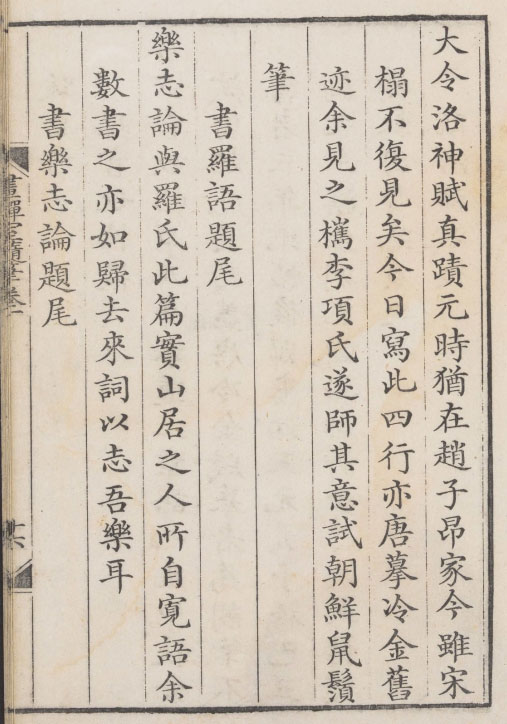 大令洛神賦真蹟元時猶在趙子昂家今雖宋
榻不復見矣今日寫此四行亦唐摹冷金舊
迹余見之檇李項氏遂師其意試朝鮮鼠鬚
筆
書羅語題尾
樂志論與羅氏此篇實山居之人所自寬語余
數書之亦如歸去來詞以志吾樂耳
書樂志論題尾
畫禪室隨筆卷一